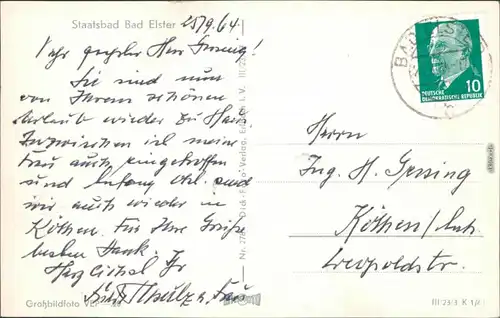 Staatsbad Bad Elster 25/9.64
Sehr geehrter Herr Gensing!
Sie sind nun
von Ihrem schönen
Urlaub wieder zu Haus
Inzwischen ist meine
Frau auch eingetroffen
und Anfang Okt. sind
wir auch wieder in
Köthen. Für Ihre Grüße
besten Dank.
Herzlichst Ihr
u. Frau
Großbildfoto VEB
Nr. 278
III 23/3 K 1/6
DEUTSCHE
DEMOKRATISCHE REPUBLIK
10
BAD ELSTER
b
Herrn
Ing. H. Gensing
Köthen/Anh.
Leopoldstr.